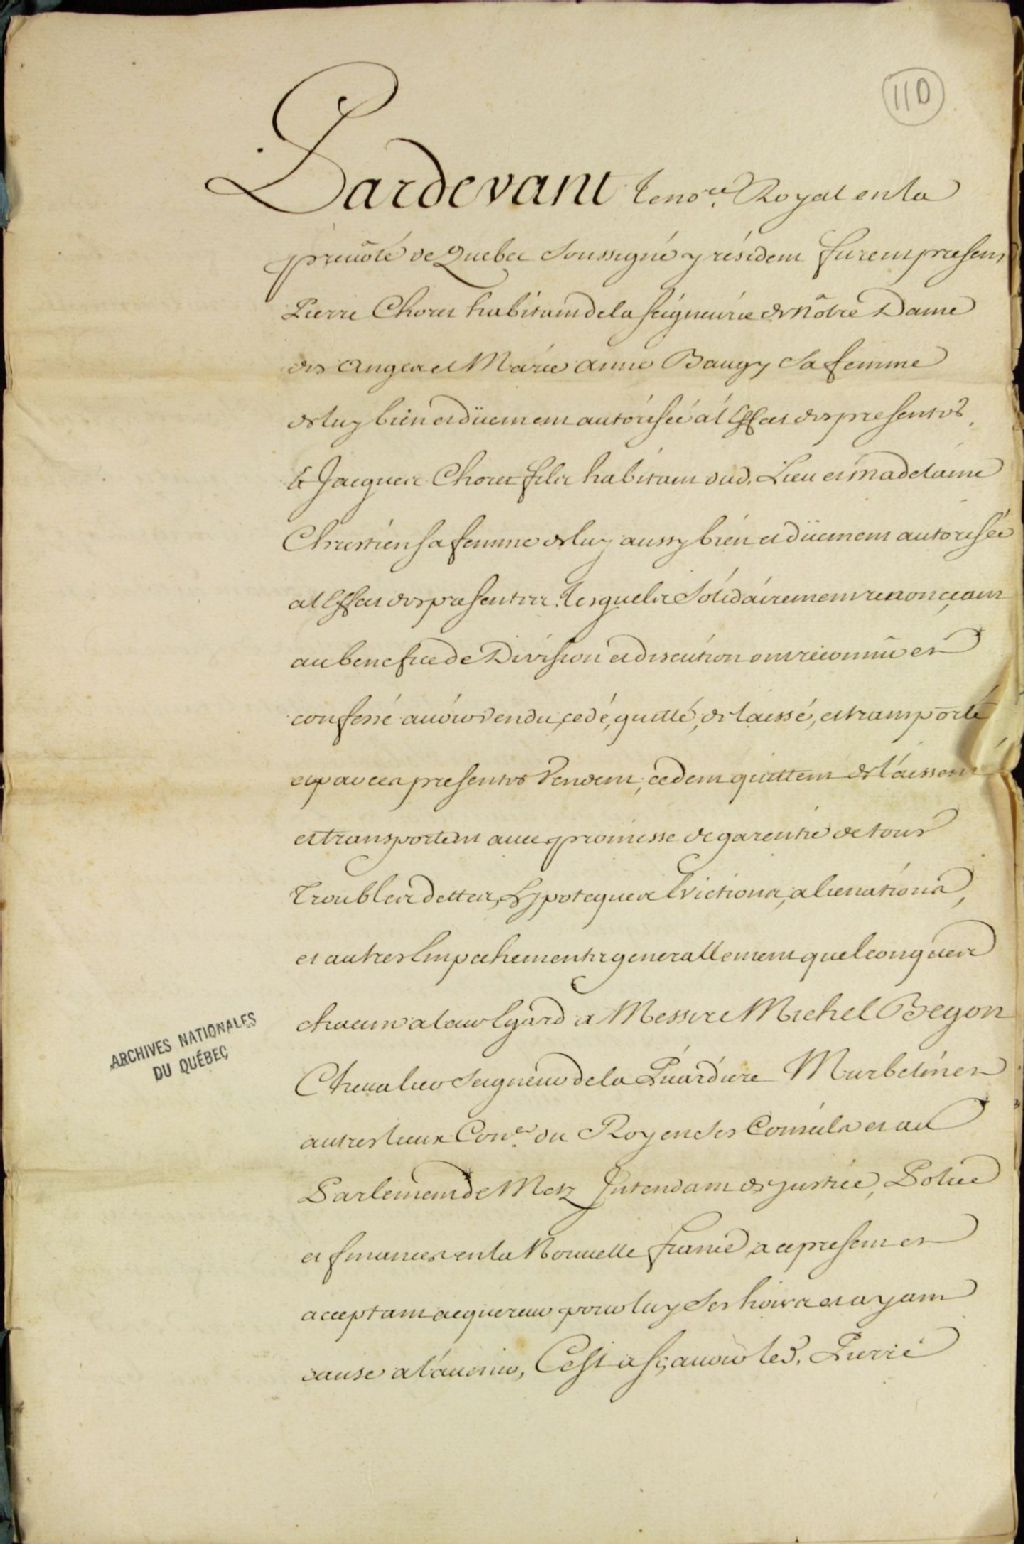 110
Pardevant Le no.re Royal en la
prévôté de Quebec soussigné y résident furent presens
Pierre Choret habitant de la seigneurie de nôtre Dame
des anges et Marie anne Baugy sa femme
de luy bien et düement autorisée a l'Effet des presentes,
& Jacques Choret fils habitant dud. Lieu et madelaine
Chrestien sa femme de luy aussy bien et düement autorisée
a l'Effet des presentes. Lesquels solidairement renonceant
au benefice de Division et discution ont reconnu et
confessé avoir vendu, cedé, quitté, delaissé, et transporté
et par ces presentes vendent, cedent quittent delaissent
et transportent avec promesse de garentie de tous
Troubles dettes, hypoteques Evictions, alienations,
et autres Empechements generallement quelconques
chacun a leur Egard a Messire Michel Begon
Chevalier seigneur de la Picardiere Murbelin et
autres lieux Con.er du Roy en ses Conseils et au
Parlement de Metz Jntendant de justice, Police
et finances en la Nouvelle france a ce present et
acceptant acquereur pour luy ses hoirs et ayant
cause a l'avenir, C'est a sçavoir led. Pierre
ARCHIVES NATIONALES
DU QUÉBEC